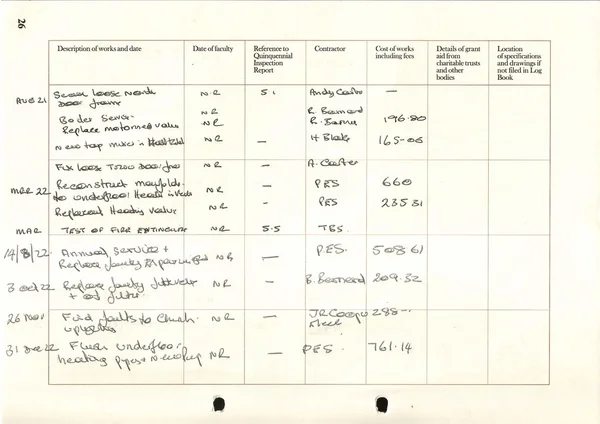 26
Description of works and date
Date of faculty
Reference to
Quinquennial
Inspection
Report
Contractor
Cost of works
including fees
Details of grant
aid from
charitable trusts
and other
bodies
Location
of specifications
and drawings if
not filed in Log
Book
AUG 21
Secure loose North NR 5.1 Andy Carter —
Door frame
Boiler Service NR R. Bernard
Replace motorised valve NR R. 196.80
New tap mixer in NR — H Blake 165-00
Fix loose door NR — A. Carter
MAR 22 Reconstruct manifold NR — PES 660
to underfloor Heads in
Replaced Heating Valve NR — PES 235 31
MAR TEST OF FIRE EXTINGUISH NR 5.5 TBS.
14/3/22 Annual Service + PES. 508.61
Replace faulty NR —
3 Oct 22 Replace faulty NR — B. Bernard 209.32
+ oil filter
26 Nov Find faults to Church NR — JR Cooper 288-
uplighters Elect
31 Dec 22 Flush underfloor
heating pipes + New pump NR — PES. 761.14